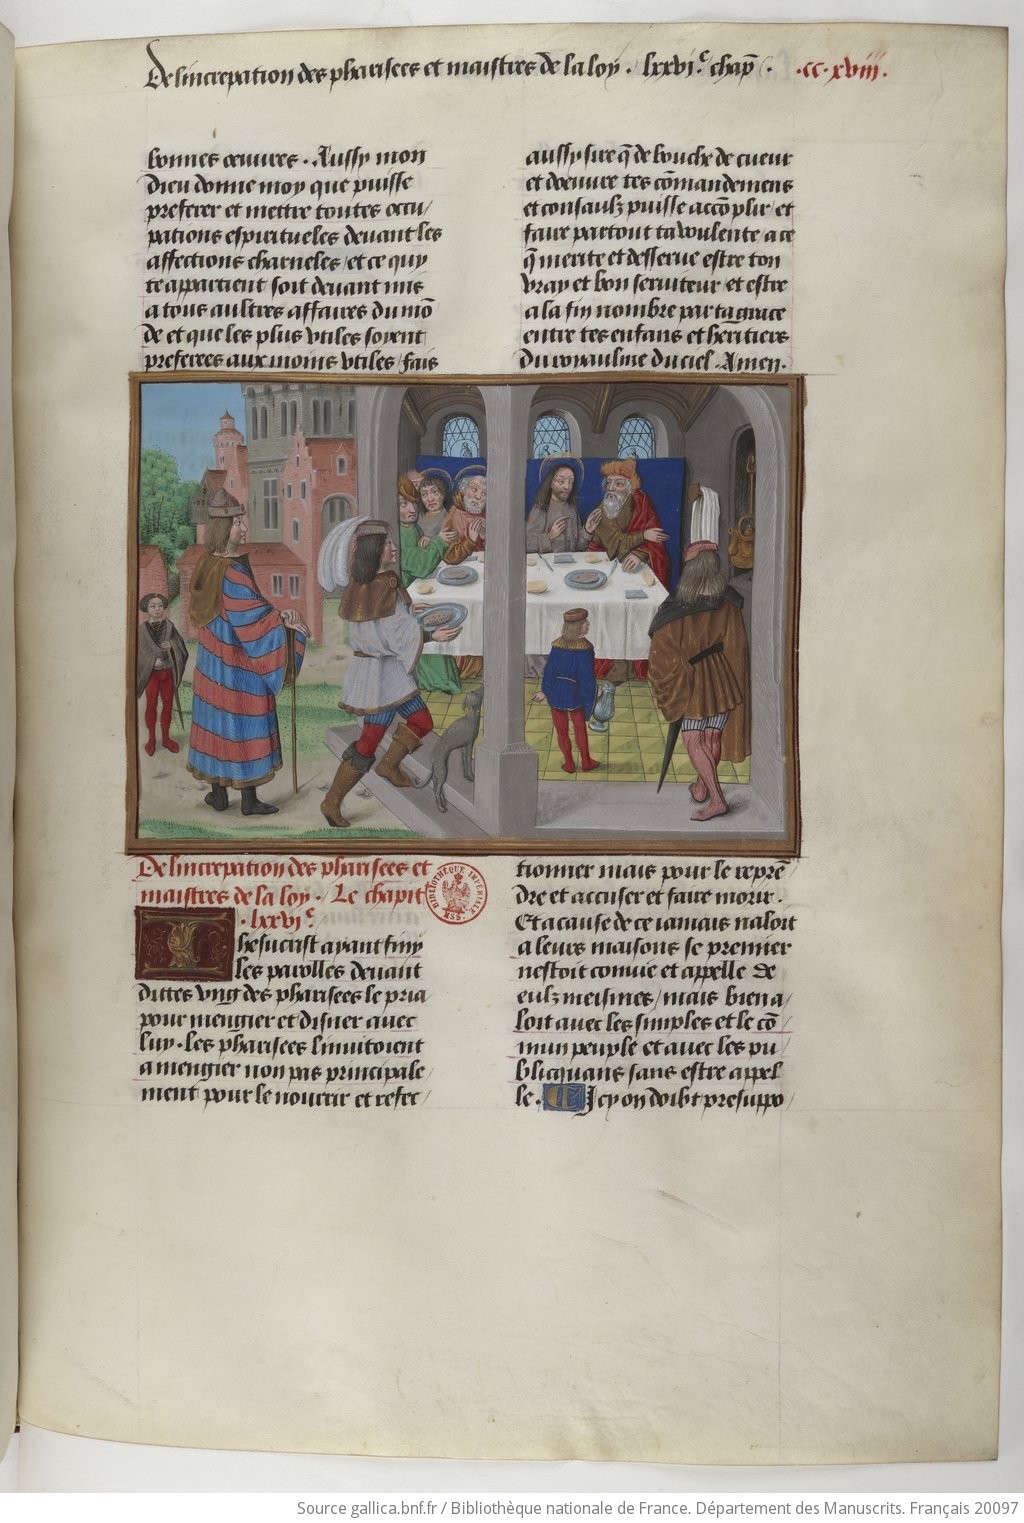 De lincrepation des pharisees et maistres de la loy . lxxvi.e chap̄ . .cc.xviii.
bonnes œuures . Aussy mon
dieu donne moy que puisse
preferer et mettre toutes occu/
pations espiritueles deuant les
affections charneles / et ce quy
te appartient soit deuant mis
a tous aultres affaires du mō
de et que les plus vtiles soyent
preferees aux moins vtiles / fais
aussy sire q̄ de bouche de cueur
et doeuure tes cōmandemens
et consaulz puisse accōplir / et
faire partout ta voulente a ce
q̄ merite et desserue estre ton
vray et bon seruiteur / et estre
a la fin nombre par ta grace
entre tes enfans et heritiers
du royaulme du ciel . Amen .
De lincrepation des pharisees et
maistres de la loy . Le chapit
. lxxvi.e
Ihesucrist ayant finy
les parolles deuant
dittes vng des pharisees le pria
pour mengier et disner auec
luy . les pharisees linuitoient
a mengier non pas principale/
ment pour le nourrir et refec/
tionner mais pour le reprē/
dre et accuser et faire morir .
Et a cause de ce iamais naloit
a leurs maisons se premier
nestoit conuie et appelle de
eulz meismes / mais bien a/
loit auec les simples et le cō/
mun peuple et auec les pu/
blicquans sans estre appel
le . Icy on doibt presuppo/
BIBLIOTHÈQUE IMPÉRIALE
MSS.
Source gallica.bnf.fr / Bibliothèque nationale de France. Département des Manuscrits. Français 20097